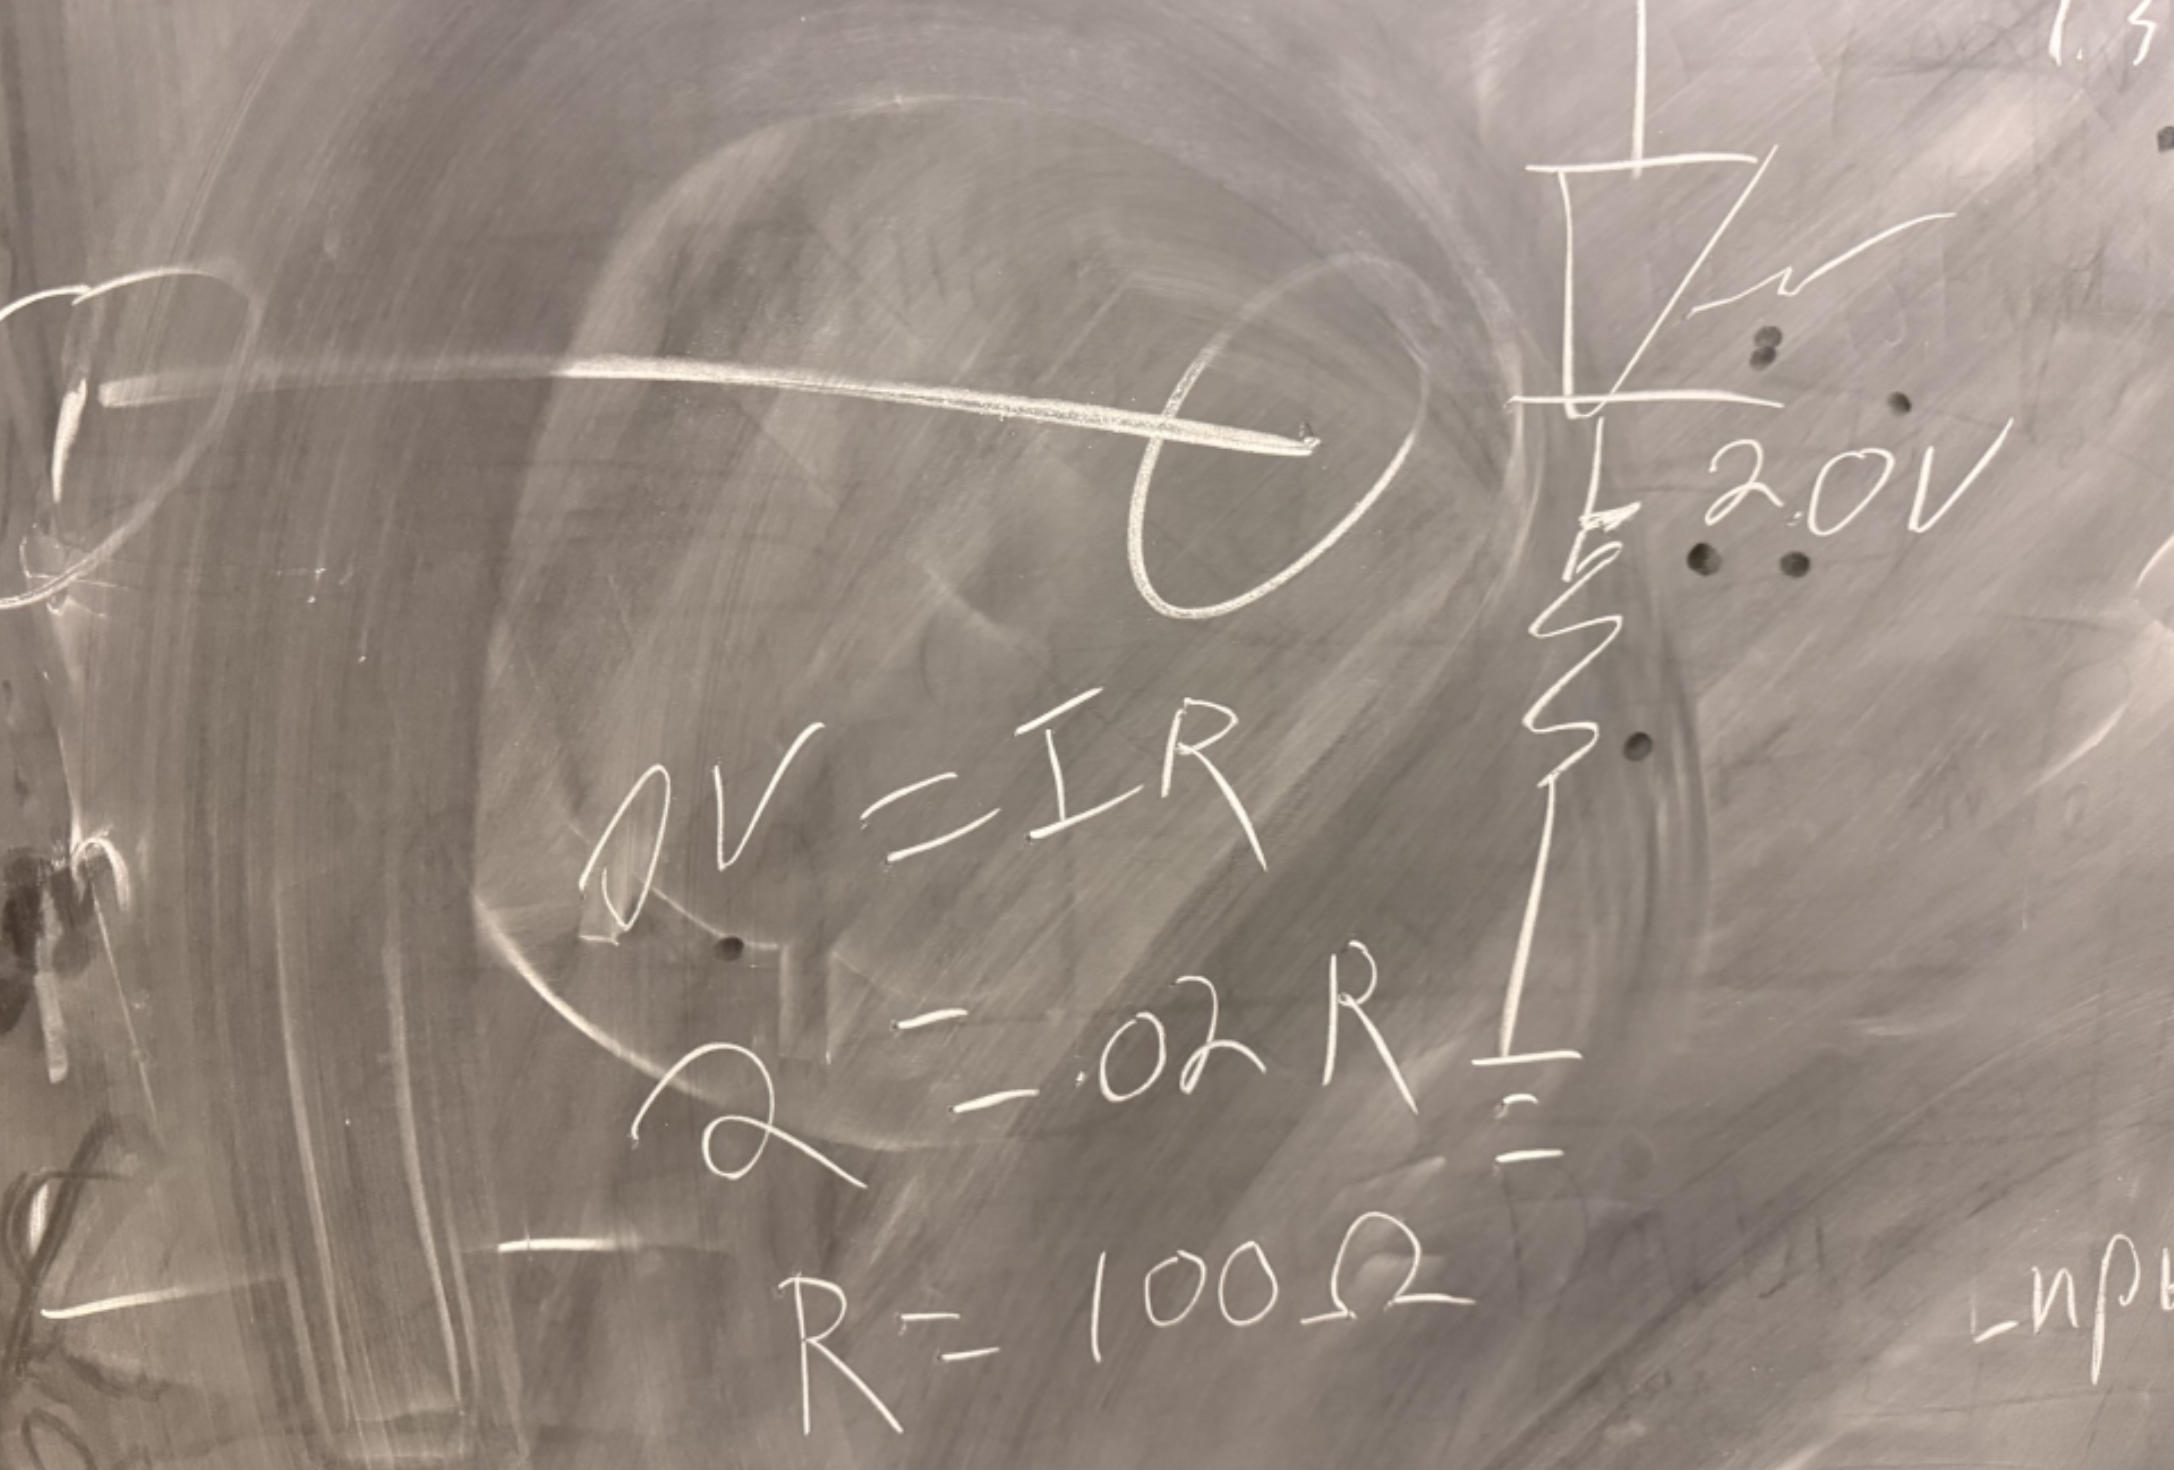 2.0V
ΔV = IR
2 = .02 R
R = 100 Ω